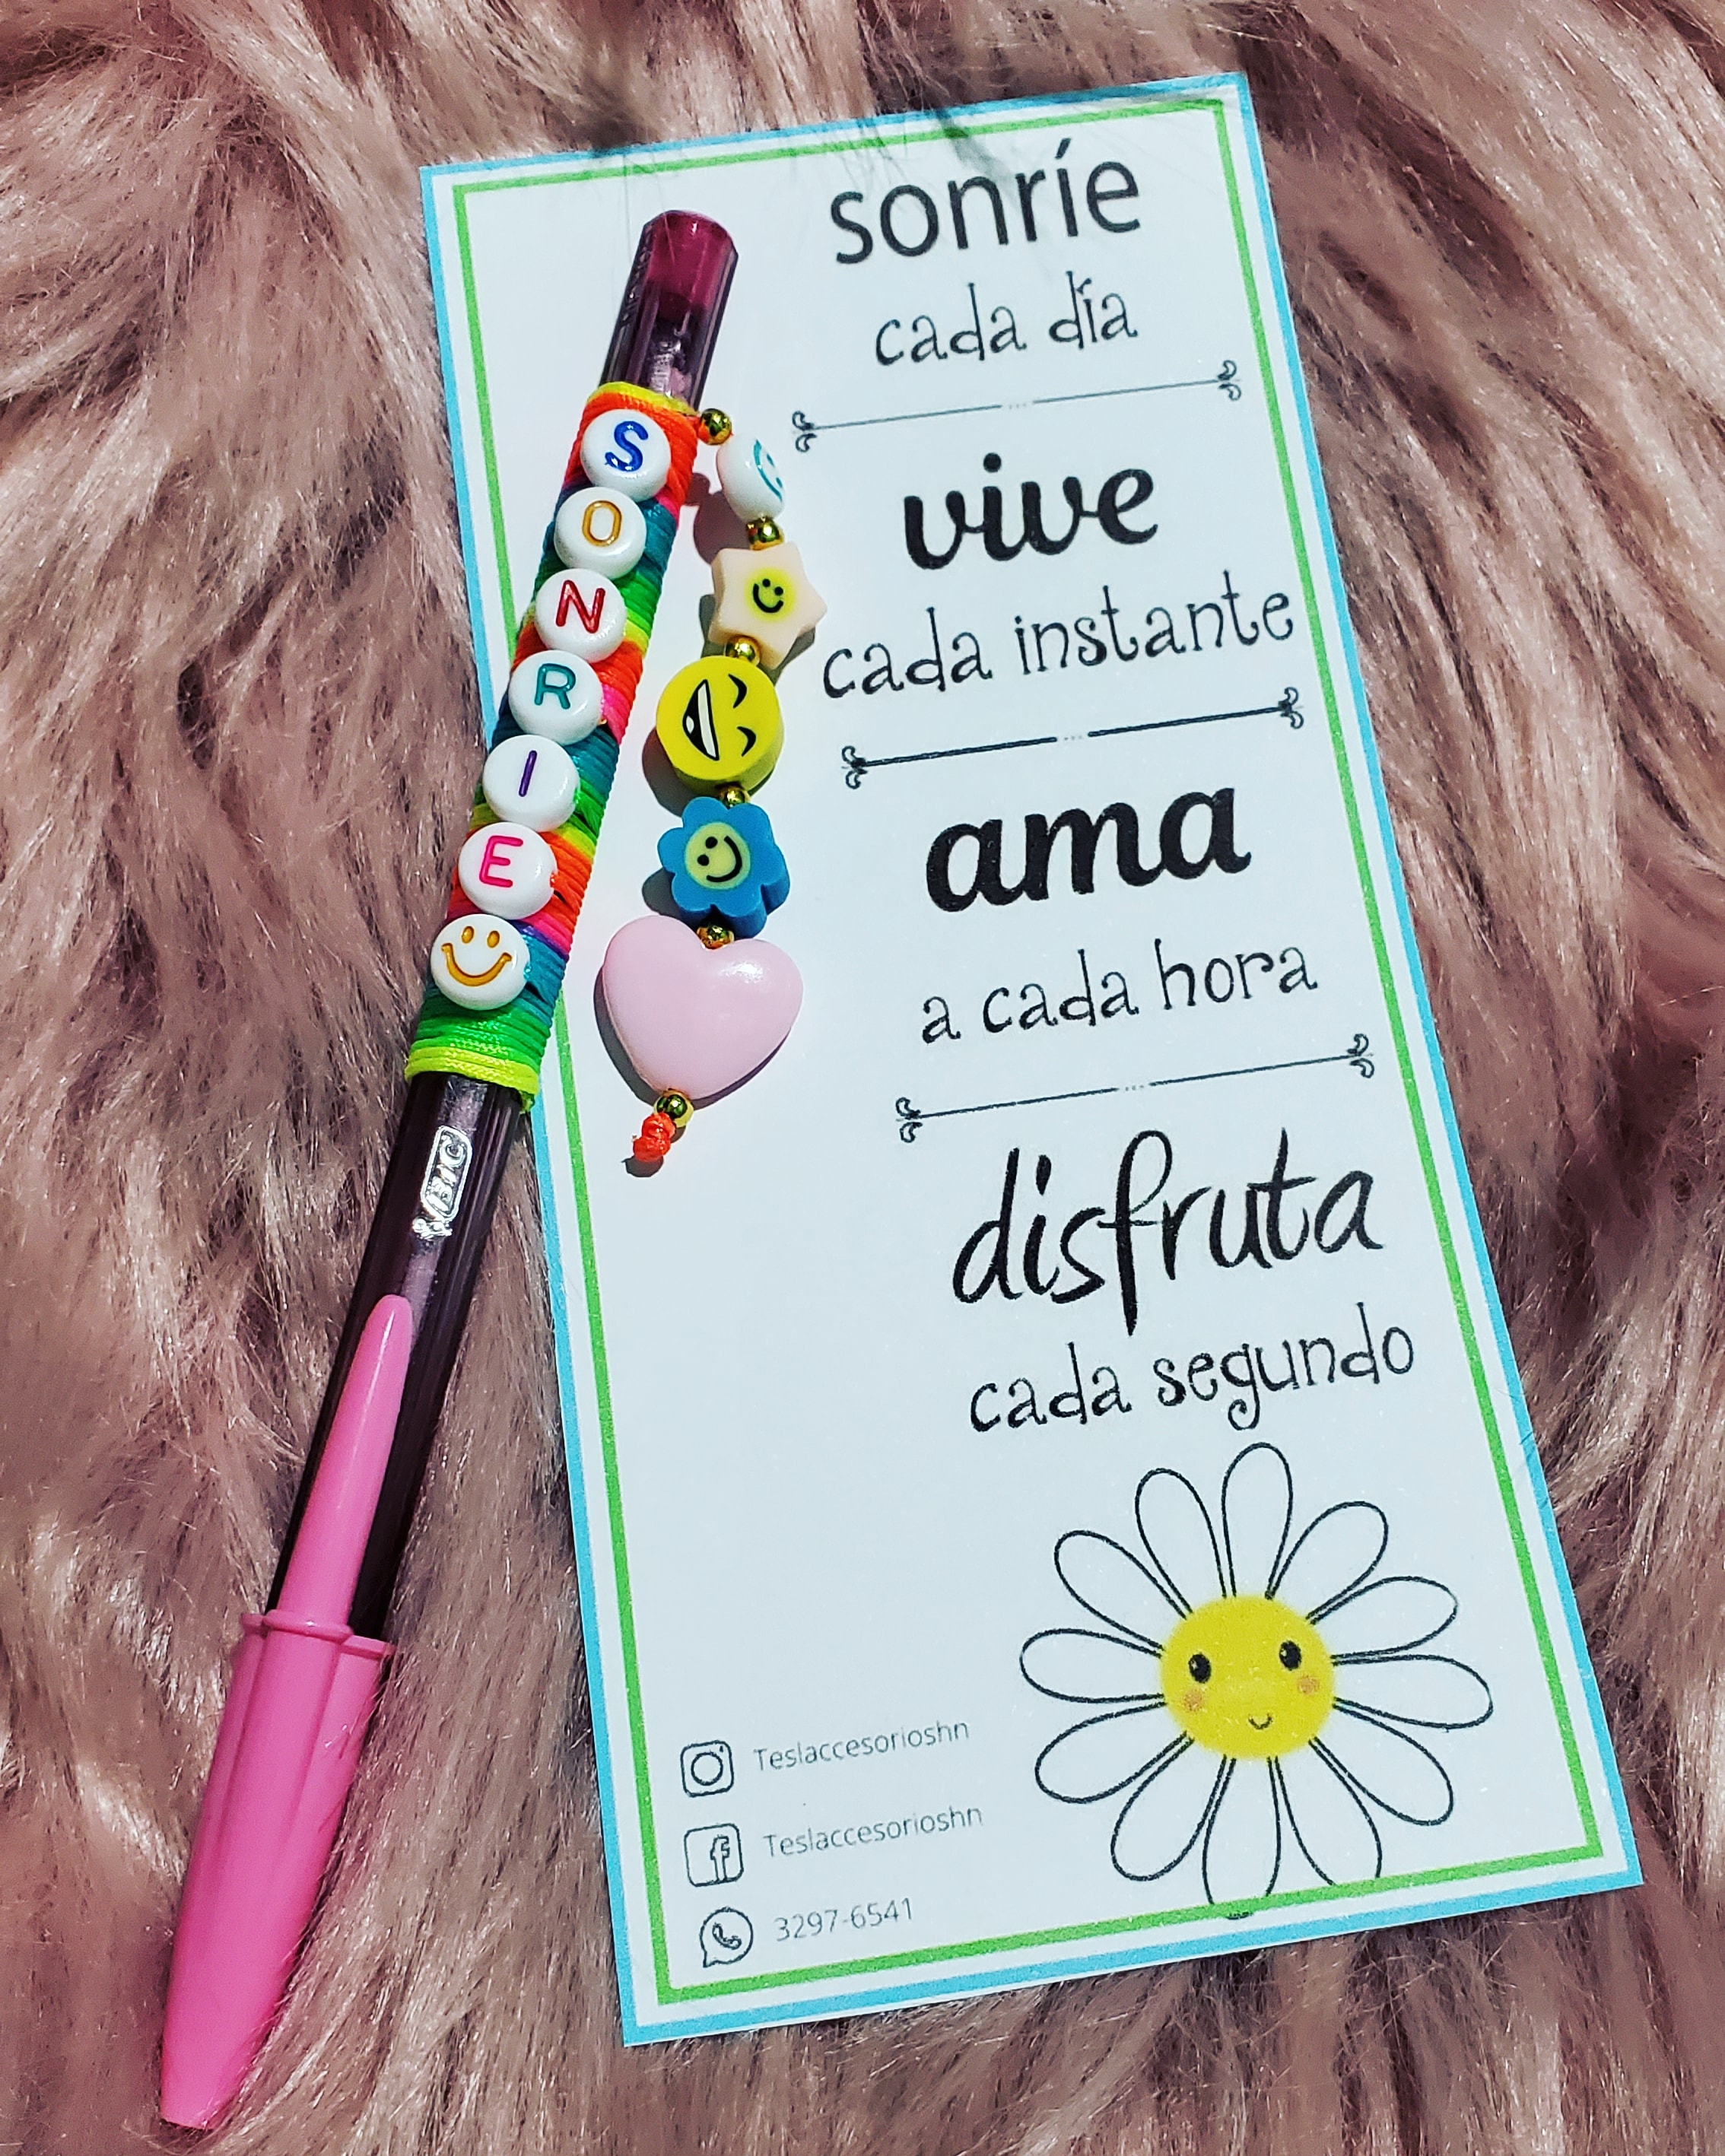 SONRIE
BIC
sonríe
cada día
vive
cada instante
ama
a cada hora
disfruta
cada segundo
Teslaccesorioshn
Teslaccesorioshn
3297-6541